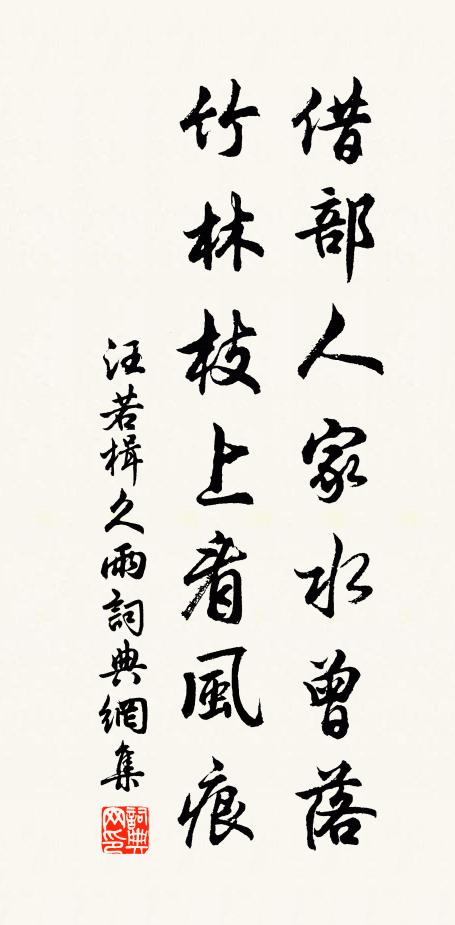 借部人家水曾落
竹林枝上看風痕
汪若楫久雨詞典網集
詞典网印